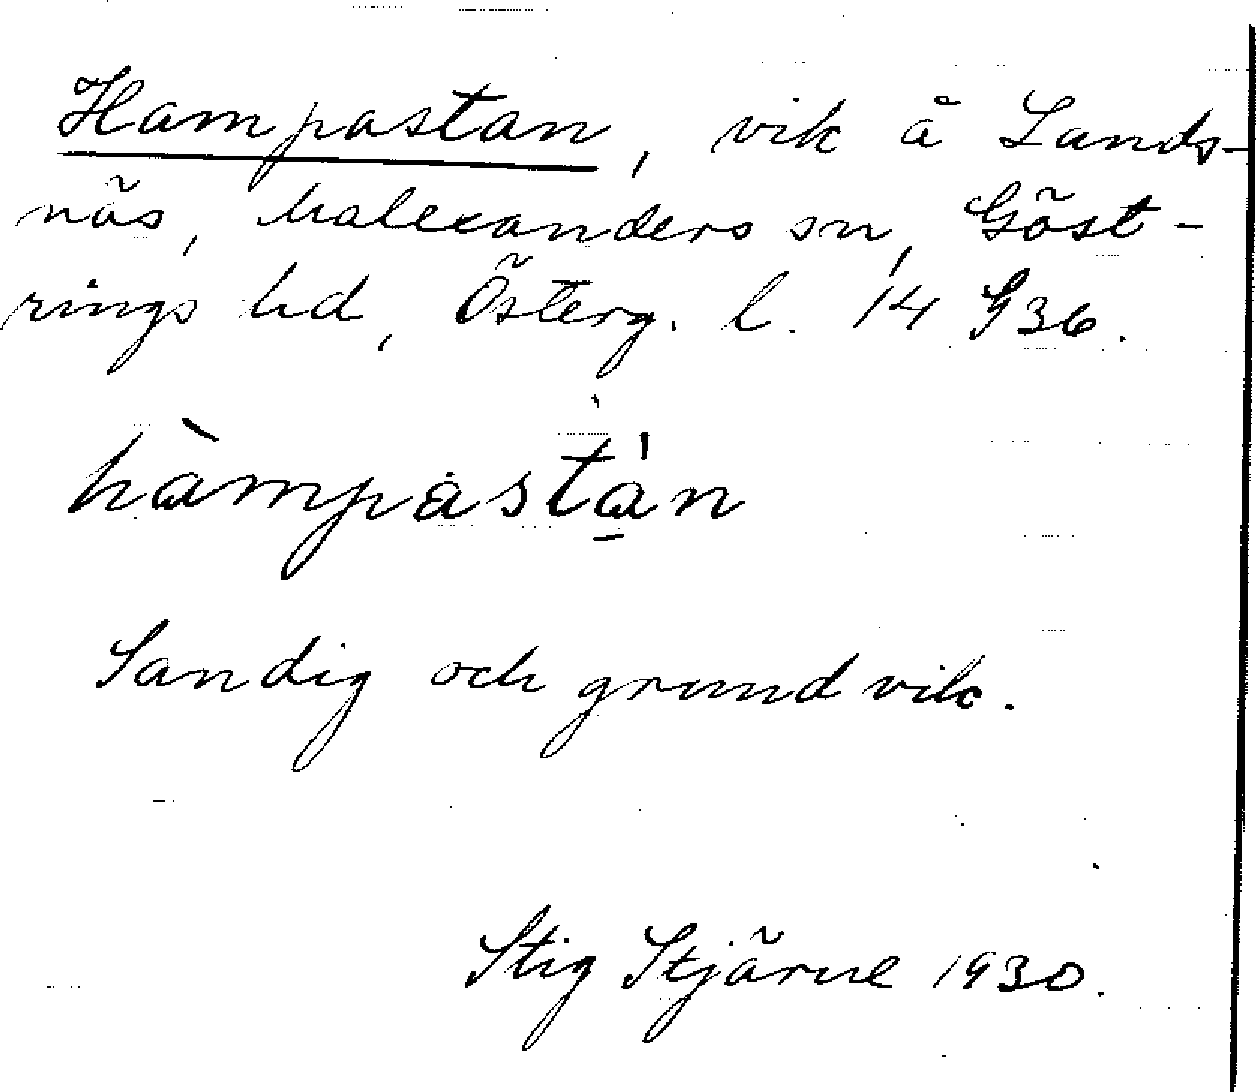 Hampastan, vik å Lands-
näs, Malexanders sn, Göst-
rings hd, Österg. l. 14 G 36.
hàmpastán
Sandig och grund vik.
Stig Stjärne 1930.